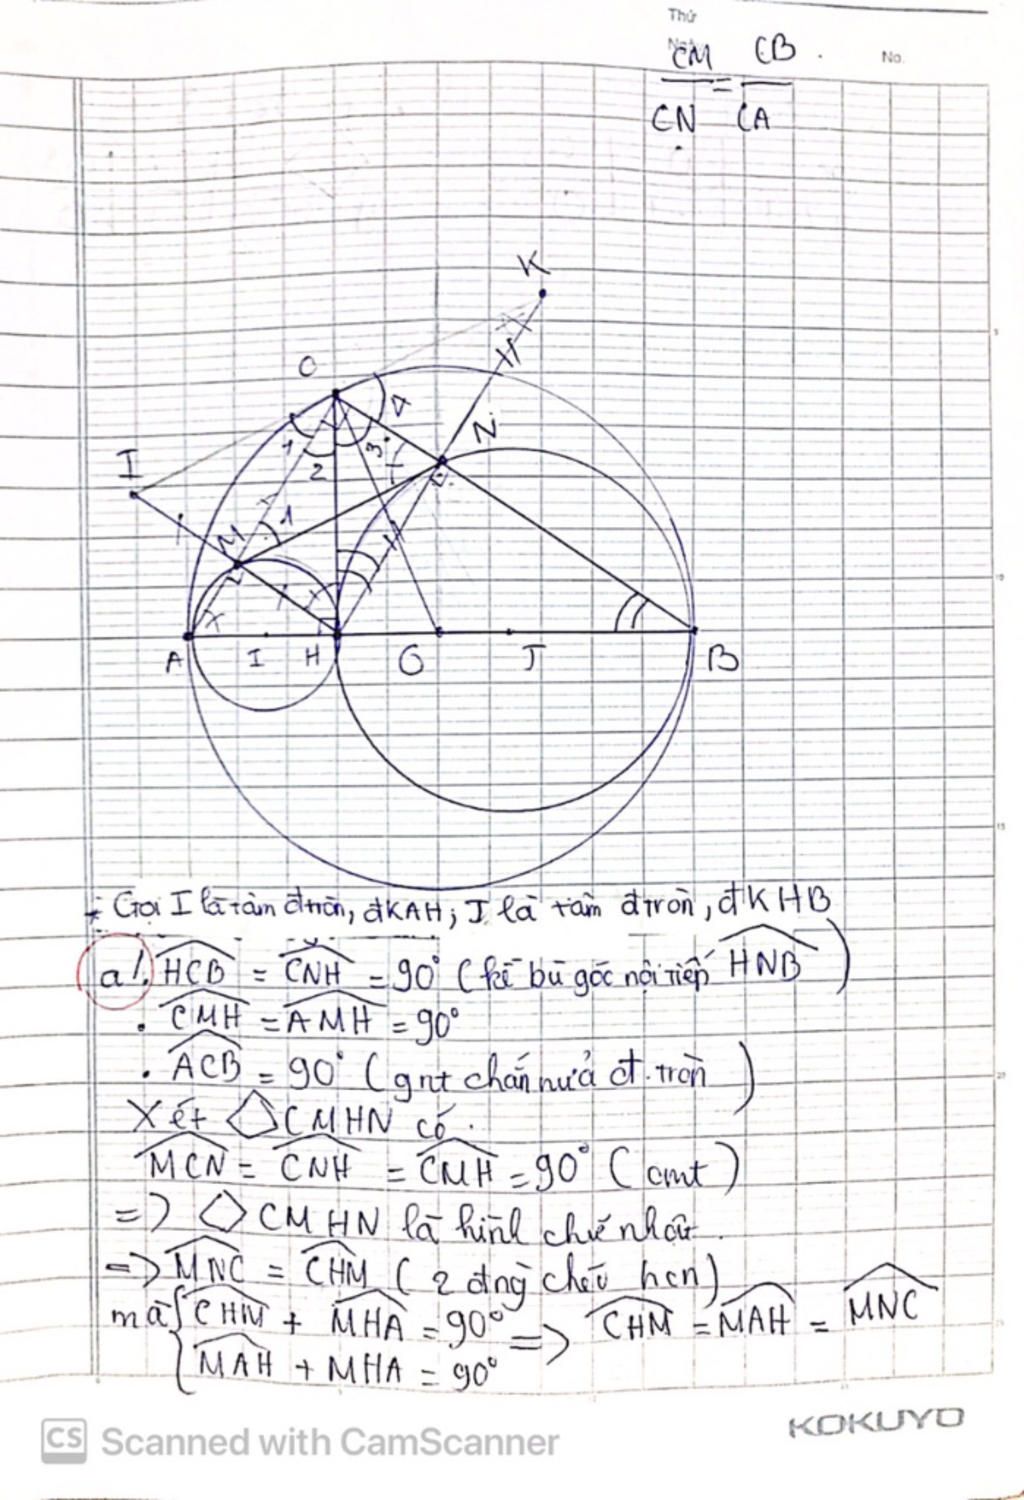 Thứ
No.
CM/CN = CB/CA
K
C
4
N
1
3
I
2
M
1
A
I
H
O
J
B
* Gọi I là tâm đtròn, đKAH; J là tâm đtròn, đKHB
a/. HCB = CNH = 90° (kề bù góc nội tiếp HNB)
. CMH = AMH = 90°
. ACB = 90° (gnt chắn nửa đ.tròn)
Xét ◇CMHN có.
MCN = CNH = CMH = 90° (cmt)
=> ◇CMHN là hình chữ nhật.
=> MNC = CHM (2 đng chéo hcn)
mà { CHM + MHA = 90° => CHM = MAH = MNC
MAH + MHA = 90°
KOKUYO
CS Scanned with CamScanner